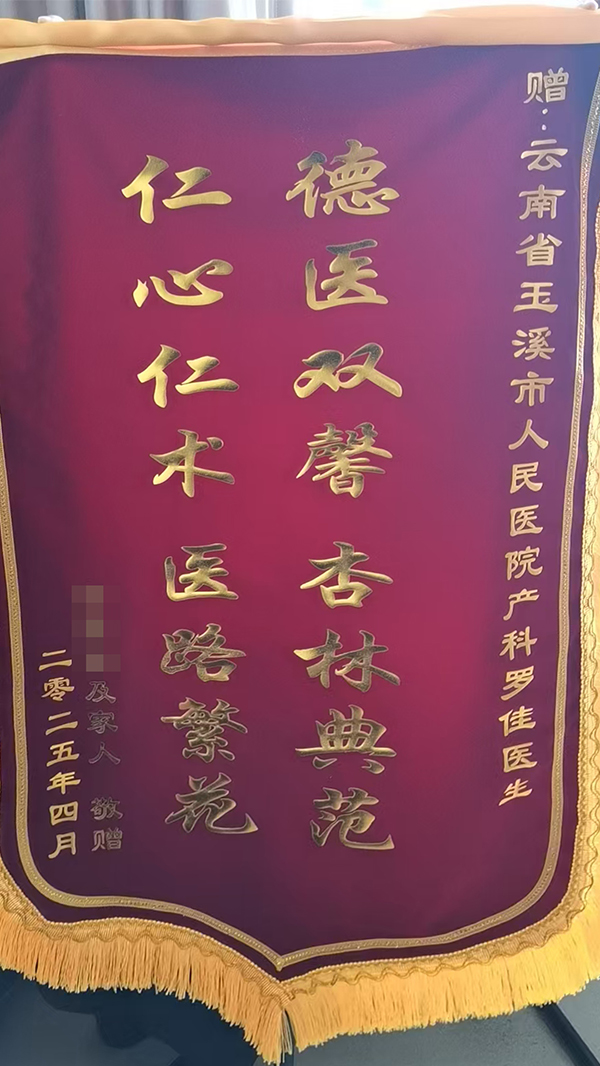 赠:云南省玉溪市人民医院产科罗佳医生
德医双馨 杏林典范
仁心仁术 医路繁花
及家人 敬赠
二零二五年四月